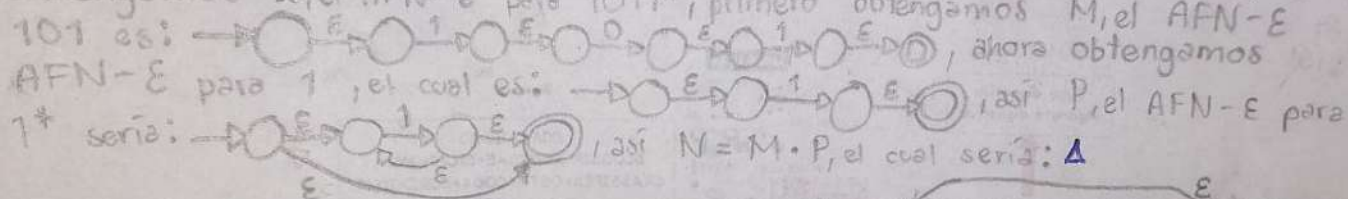 obtengamos M, el AFN-ε
101 es: ε 1 ε 0 ε 1 ε , ahora obtengamos
AFN-ε para 1, el cual es: ε 1 ε , así P, el AFN-ε para
1* sería: ε 1 ε , así N = M · P, el cual sería: Δ
ε ε ε